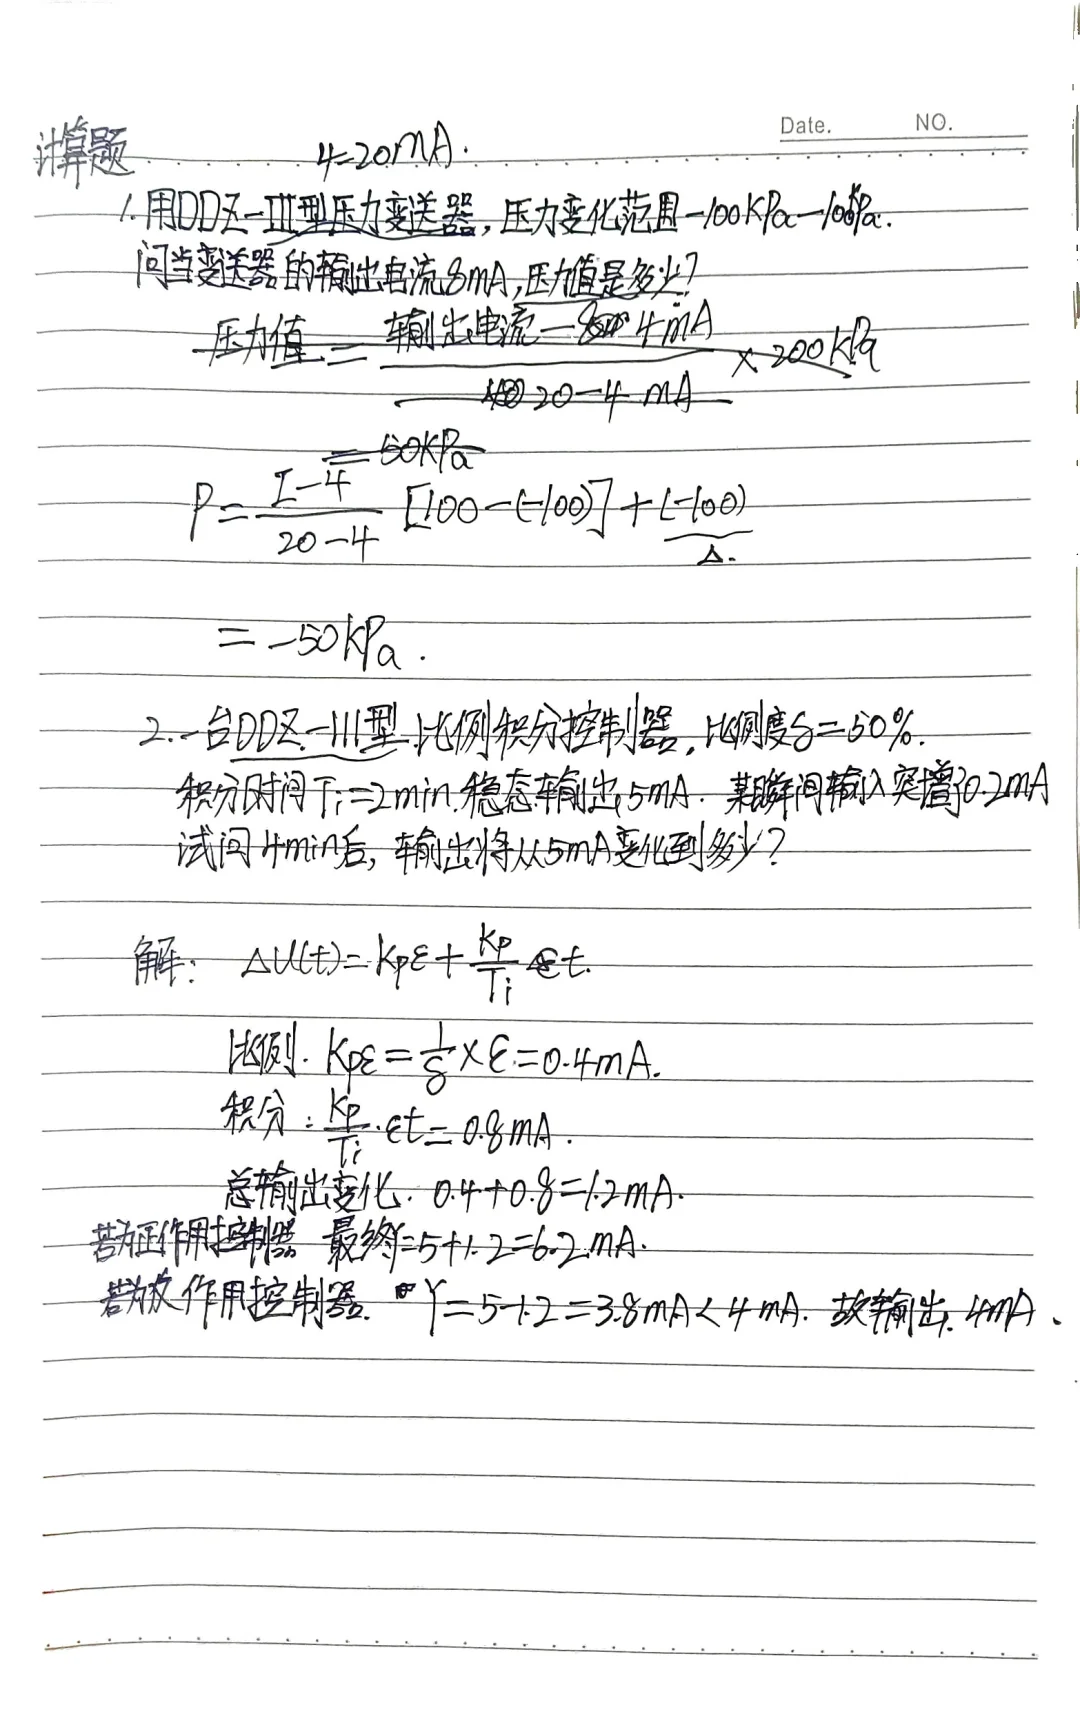 Date. NO.
计算题 4-20mA.
1. 用DDZ-III型压力变送器,压力变化范围-100KPa-100kPa.
问当变送器的输出电流8mA,压力值是多少?
压力值 = 输出电流-4mA / 20-4 mA × 200kPa
= 50KPa
P= I-4 / 20-4 [100-(-100)]+(-100)
△.
= -50kPa.
2.一台DDZ-III型比例积分控制器,比例度δ=50%.
积分时间Ti=2min.稳态输出5mA. 某瞬间输入突增了0.2mA
试问4min后,输出将从5mA变化到多少?
解: △U(t)=Kpε+ Kp/Ti εt.
比例. Kpε= 1/δ ×ε=0.4mA.
积分: Kp/Ti ·εt=0.8mA.
总输出变化. 0.4+0.8=1.2mA.
若为正作用控制器 最终=5+1.2=6.2mA.
若为反作用控制器. Y=5-1.2=3.8mA<4mA. 故输出. 4mA.